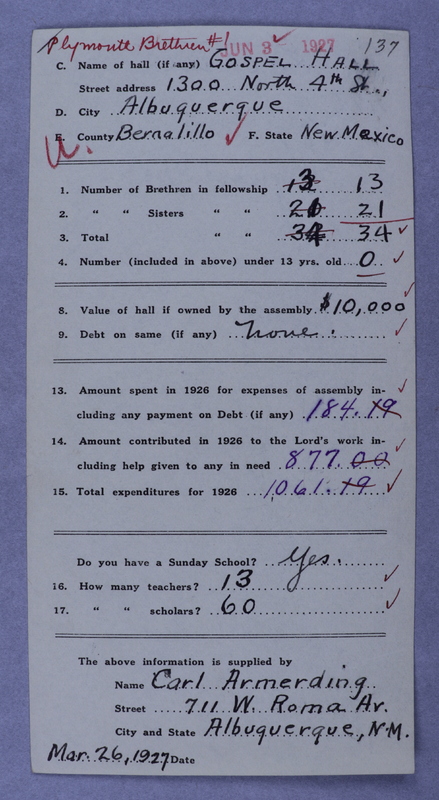 Plymouth Brethren #1 JUN 3 1927 137
C. Name of hall (if any) GOSPEL HALL
Street address 1300 North 4th St.,
D. City Albuquerque
E. County Bernalillo F. State New Mexico
U.
1. Number of Brethren in fellowship 13 13
2. " " Sisters " " 21 21
3. Total " " 34 34
4. Number (included in above) under 13 yrs. old 0
8. Value of hall if owned by the assembly $10,000
9. Debt on same (if any) none.
13. Amount spent in 1926 for expenses of assembly in-
cluding any payment on Debt (if any) 184.19
14. Amount contributed in 1926 to the Lord's work in-
cluding help given to any in need 877.00
15. Total expenditures for 1926 1061.19
Do you have a Sunday School? Yes.
16. How many teachers? 13
17. " " scholars? 60
The above information is supplied by
Name Carl Armerding
Street 711 W. Roma Av.
City and State Albuquerque, N.M.
Mar. 26, 1927 Date